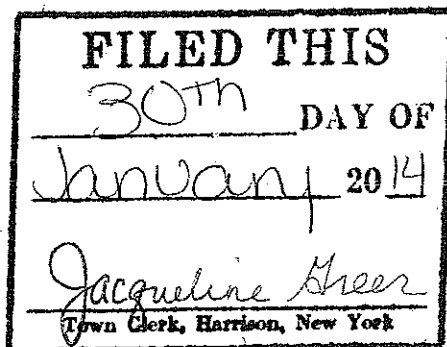 FILED THIS
30TH DAY OF
January 2014
Jacqueline Greer
Town Clerk, Harrison, New York